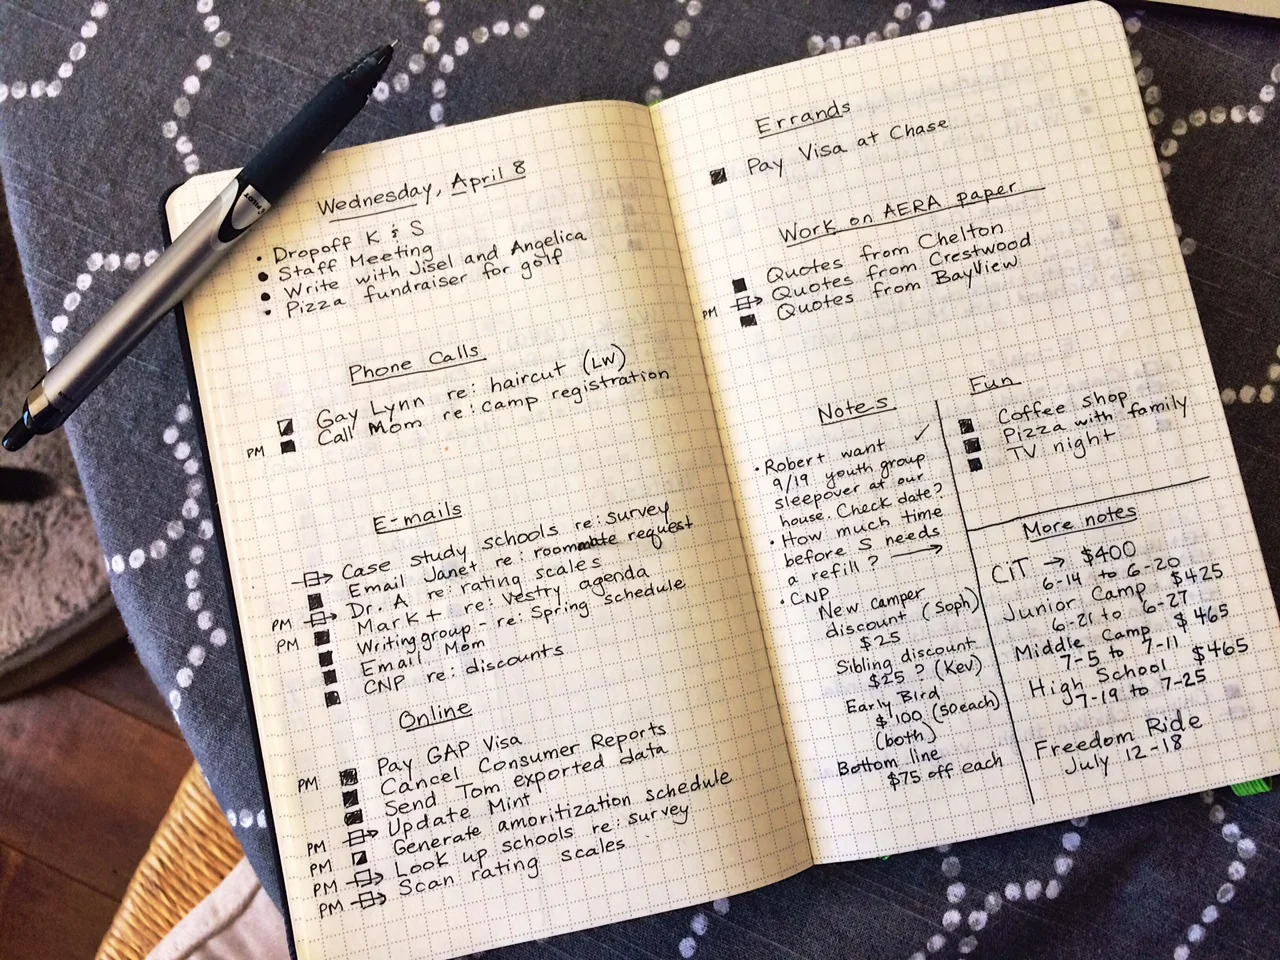 Wednesday, April 8
• Dropoff K & S
• Staff Meeting
• Write with Jisel and Angelica
• Pizza fundraiser for golf
Phone Calls
Gay Lynn re: haircut (LW)
PM Call Mom re: camp registration
E-mails
Case study schools re: survey
Email Janet re: roommate request
PM Dr. A re: rating scales
PM Mark t re: Vestry agenda
Writing group - re: Spring schedule
Email Mom
CNP re: discounts
Online
PM Pay GAP Visa
Cancel Consumer Reports
Send Tom exported data
PM Update Mint
PM Generate amoritization schedule
PM Look up schools re: survey
PM Scan rating scales
PILOT
Errands
Pay Visa at Chase
Work on AERA paper
Quotes from Chelton
PM Quotes from Crestwood
Quotes from BayView
Notes
• Robert want ✓
9/19 youth group
sleepover at our
house. Check date?
• How much time
before S needs
a refill? →
• CNP
New camper
discount (Soph)
$25
Sibling discount
$25 ? (Kev)
Early Bird
$100 (50 each)
(both)
Bottom line
$75 off each
Fun
Coffee shop
Pizza with family
TV night
More notes
CIT → $400
6-14 to 6-20
Junior Camp $425
6-21 to 6-27
Middle Camp $465
7-5 to 7-11
High School $465
7-19 to 7-25
Freedom Ride
July 12-18